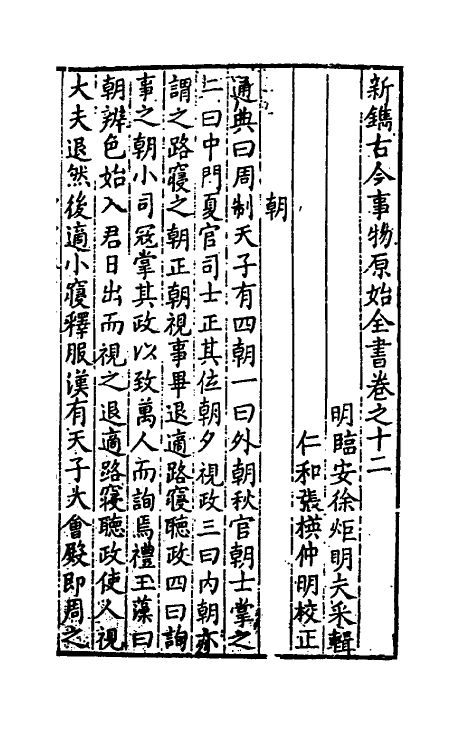 新鐫古今事物原始全書卷之十二
明臨安徐炬明夫采輯
仁和張楧仲明校正
朝
通典曰周制天子有四朝一曰外朝秋官朝士掌之
二曰中門夏官司士正其位朝夕視政三曰内朝亦
謂之路寢之朝正朝視事畢退適路寢聽政四曰詢
事之朝小司冦掌其政以致萬人而詢焉禮玉藻曰
朝辨色始入君日出而視之退適路寢聽政使人視
大夫退然後適小寢釋服漢有天子大會殿即周之